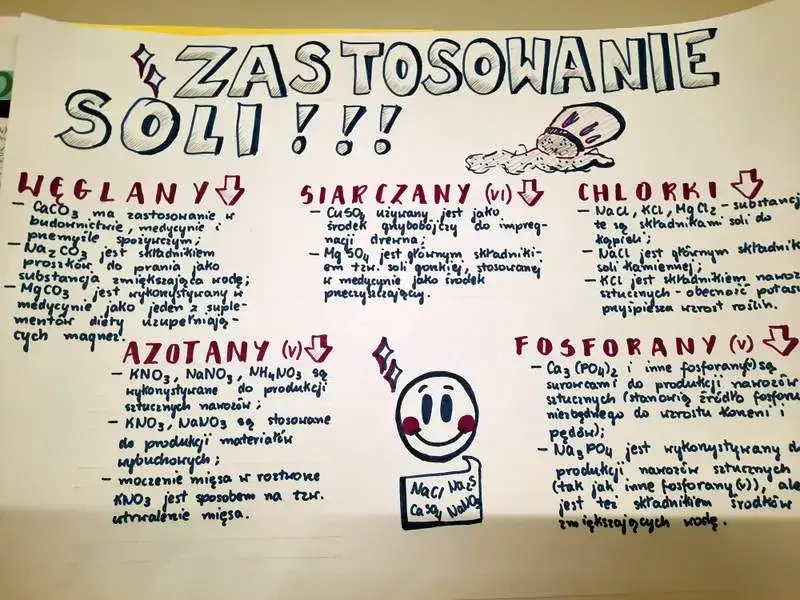 ZASTOSOWANIE
SOLI!!!
WĘGLANY
- CaCO3 ma zastosowanie w
budownictwie, medycynie i
przemyśle spożywczym;
- Na2CO3 jest składnikiem
proszków do prania jako
substancja zmiękczająca wodę;
- MgCO3 jest wykorzystywany w
medycynie jako jeden z suple-
mentów diety uzupełniają-
cych magnez.
SIARCZANY (VI)
- CuSO4 używany jest jako
środek grzybobójczy do impreg-
nacji drewna;
- MgSO4 jest głównym składniki-
em tzw. soli gorzkiej, stosowanej
w medycynie jako środek
przeczyszczający.
CHLORKI
- NaCl, KCl, MgCl2 - substancj
te są składnikami soli do
kąpieli;
- NaCl jest głównym składnik
soli kamiennej;
- KCl jest składnikiem nawoz
sztucznych - obecność potas
przyśpiesza wzrost roślin.
AZOTANY (V)
- KNO3, NaNO3, NH4NO3 są
wykorzystywane do produkcji
sztucznych nawozów;
- KNO3, NaNO3 są stosowane
do produkcji materiałów
wybuchowych;
- moczenie mięsa w roztworze
KNO3 jest sposobem na tzw.
utrwalenie mięsa.
NaCl Na2S
CaSO4 NaNO3
FOSFORANY (V)
- Ca3(PO4)2 i inne fosforany(V) są
surowcami do produkcji nawozów
sztucznych (stanowią źródło fosforu
niezbędnego do wzrostu korzeni i
pędów);
- Na3PO4 jest wykorzystywany d
produkcji nawozów sztucznych
(tak jak inne fosforany (V)), ale
jest też składnikiem środków
zmiękczających wodę.